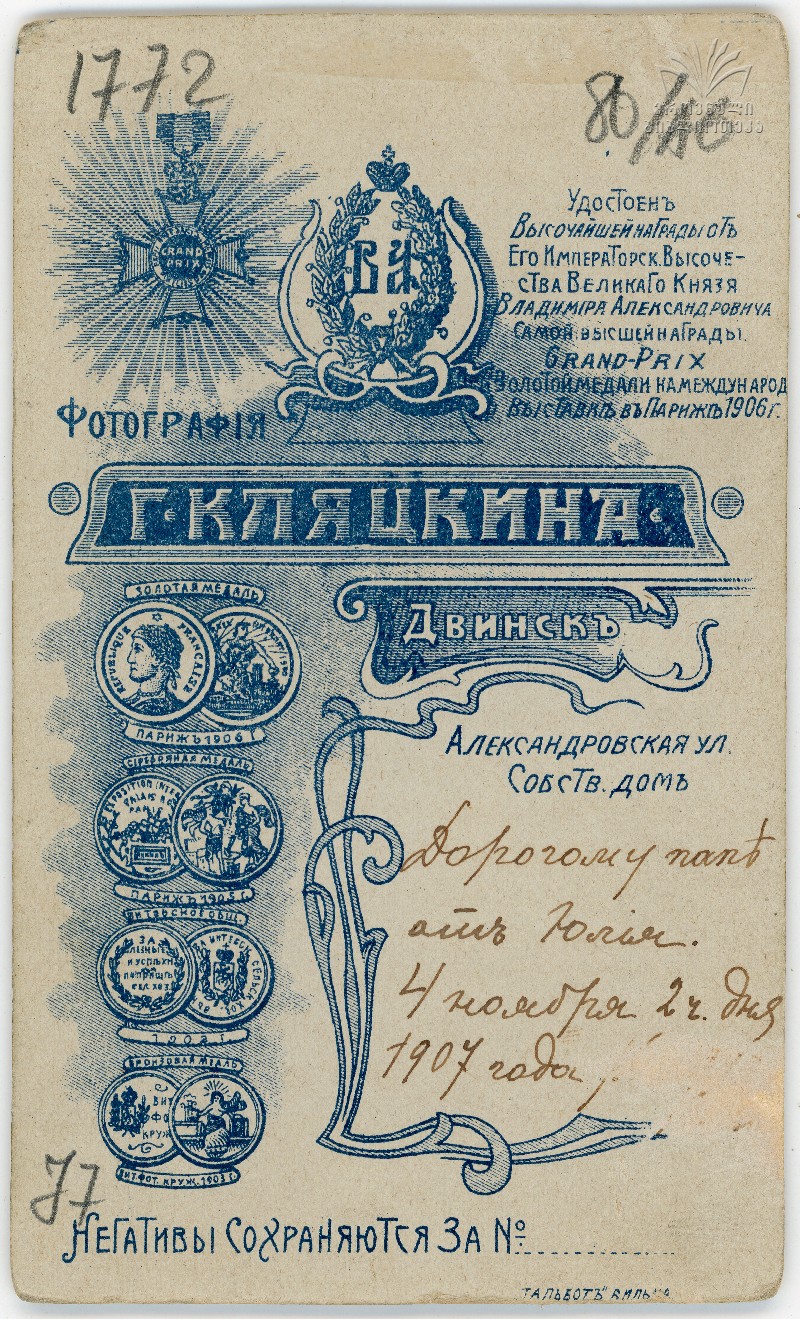 1772
80/
GRAND
PRIX
ВА
Удостоенъ
Высочайшей награды отъ
Его Императорск. Высоче-
ства Великаго Князя
Владиміра Александровича
Самой высшей награды
GRAND-PRIX
Золотой медали на международ
выставкѣ въ Парижѣ 1906 г.
Фотографія
Г. КЛЯЦКИНА
ЗОЛОТАЯ МЕДАЛЬ
REPUBLIQUE FRANÇAISE
ПАРИЖЪ 1906 Г
Двинскъ
Александровская ул.
Собств. домъ
СЕРЕБРЯНАЯ МЕДАЛЬ
ПАРИЖЪ 1905 г.
ВИТЕБСКОЕ ОБЩ.
ЗА
ПОЛЕЗНЫЕ
И УСПѢХИ
СЕЛ. ХОЗ.
1903 г.
БРОНЗОВАЯ МЕДАЛЬ
ВИТ
ФО
КРУЖ
ВИТ. ФОТ. КРУЖ. 1903 г.
Дорогому папѣ
отъ Юлія.
4 ноября 2 ч. дня
1907 года
77
Негативы Сохраняются За №
ТАЛЬБОТЪ" ВИЛЬНА